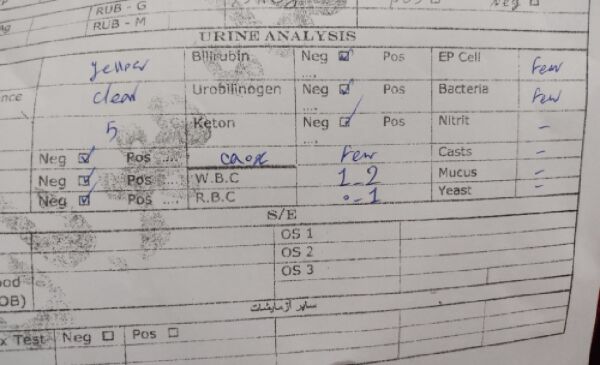 RUB - G
RUB - M
Neg
URINE ANALYSIS
yellow Bilirubin Neg ☑ Pos .... EP Cell Few
clear Urobilinogen Neg ☑ Pos .... Bacteria Few
5 Keton Neg ☑ Pos .... Nitrit -
Neg ☑ Pos .... ca.ox Few Casts -
Neg ☑ Pos .... W.B.C 1-2 Mucus -
Neg ☑ Pos .... R.B.C 0-1 Yeast -
S/E
OS 1
OS 2
OS 3
OB)
سایر آزمایشات
x Test Neg ☐ Pos ☐